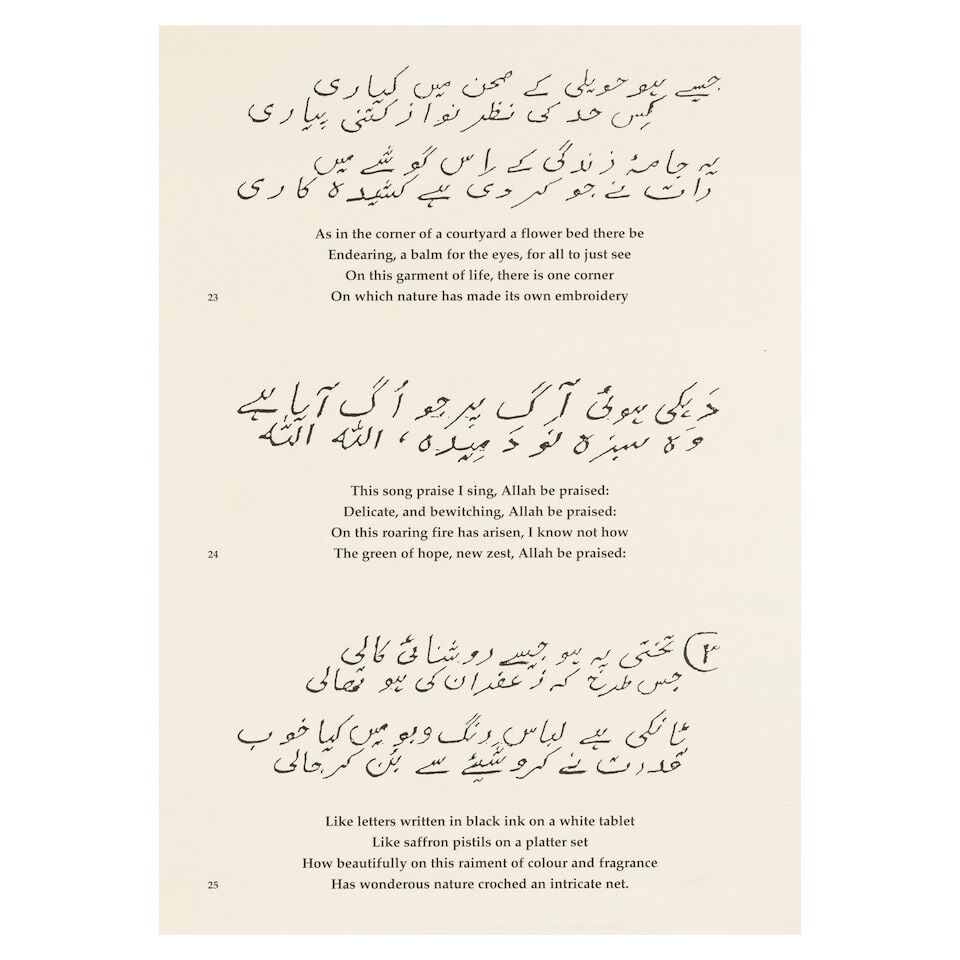 جیسے ہو حویلی کے صحن میں کیاری
کس حد کی نظر نواز کتنی پیاری
یہ جامۂ زندگی کے اس گوشے میں
ذات نے جو کر دی ہے کشیدہ کاری
As in the corner of a courtyard a flower bed there be
Endearing, a balm for the eyes, for all to just see
On this garment of life, there is one corner
23 On which nature has made its own embroidery
دَہکی ہوئی آگ پر جو اُگ آیا ہے
وہ سبزہ نو دَمیدہ، اللہ اللہ
This song praise I sing, Allah be praised:
Delicate, and bewitching, Allah be praised:
On this roaring fire has arisen, I know not how
24 The green of hope, new zest, Allah be praised:
تختی پہ ہو جیسے روشنائی کالی
جس طرح کہ زعفران کی ہو تھالی
ٹانکی ہے لباسِ رنگ و بو میں کیا خوب
قدرت نے کروشیئے سے بُن کر جالی
Like letters written in black ink on a white tablet
Like saffron pistils on a platter set
How beautifully on this raiment of colour and fragrance
25 Has wonderous nature croched an intricate net.